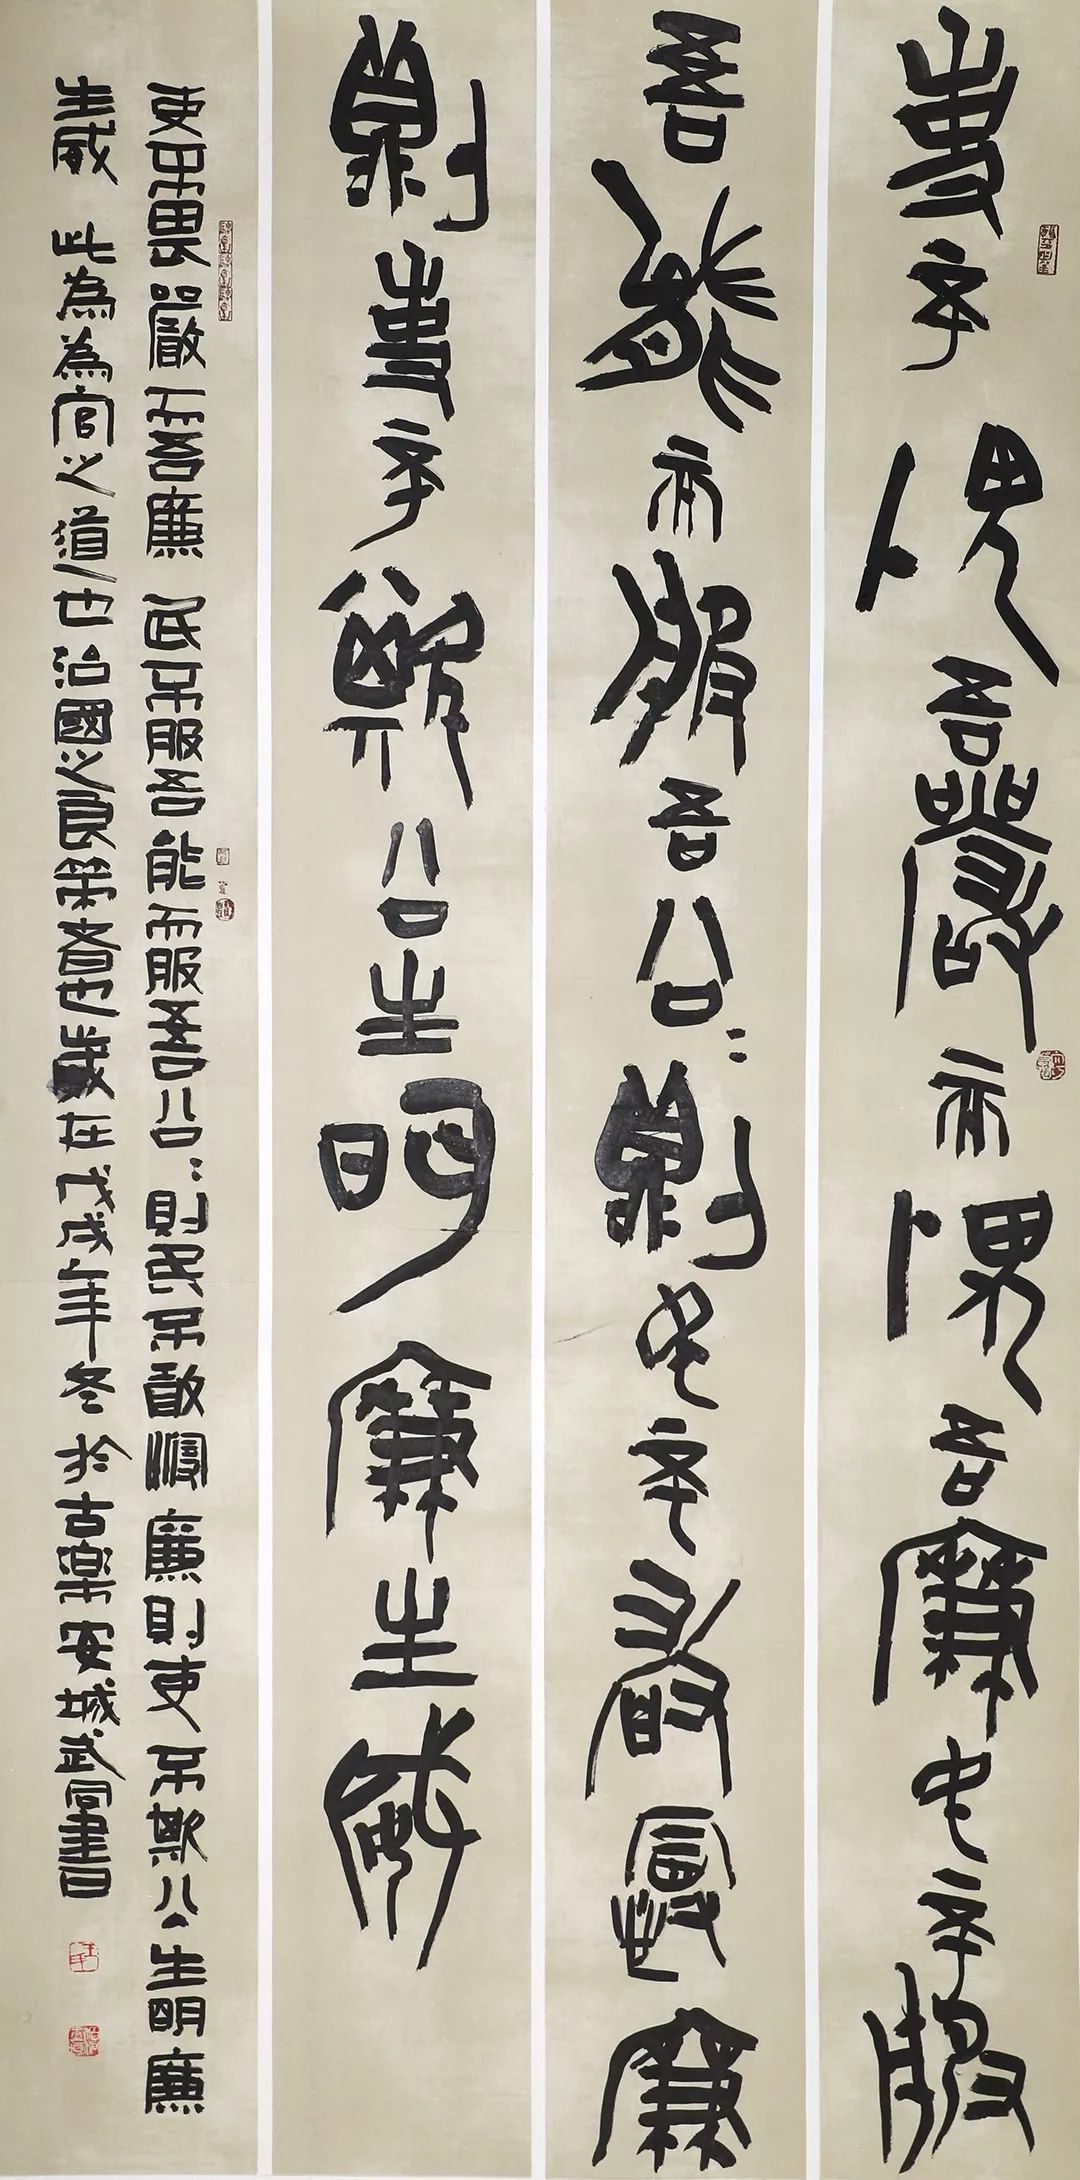 吏不畏吾嚴而畏吾廉民不服
吾能而服吾公:則民不敢慢廉
則吏不欺公生明廉生威
吏不畏嚴而吾廉民不服吾能而服吾公:則民不敢慢廉則吏不欺公生明廉
生威 此為為官之道也治國之良策者也歲在戊戌年冬於古樂安城武同書